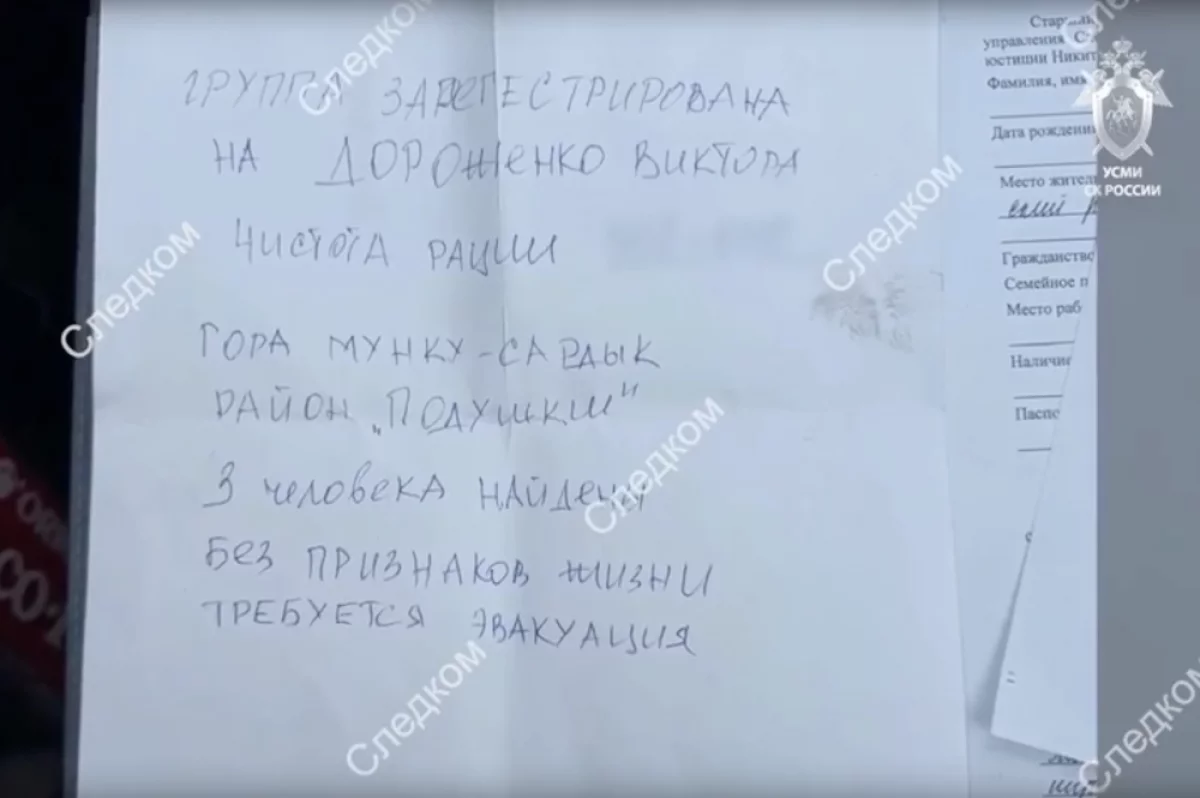 ГРУППА ЗАРЕГЕСТРИРОВАНА
НА ДОРОЖЕНКО ВИКТОРА
ЧИСТОТА РАЦИИ
ГОРА МУНКУ-САРДЫК
РАЙОН „ПОДУШКИ"
3 человека НАЙДЕНЫ
БЕЗ ПРИЗНАКОВ ЖИЗНИ
ТРЕБУЕТСЯ ЭВАКУАЦИЯ
управления
юстиции Никит
Фамилия, им
Дата рождени
Место жител
Гражданство
Семейное п
Место раб
Наличи
Паспо
УСМИ
СК РОССИИ
Следком
Следком
Следком
Следком
Следком
Следком
Следком